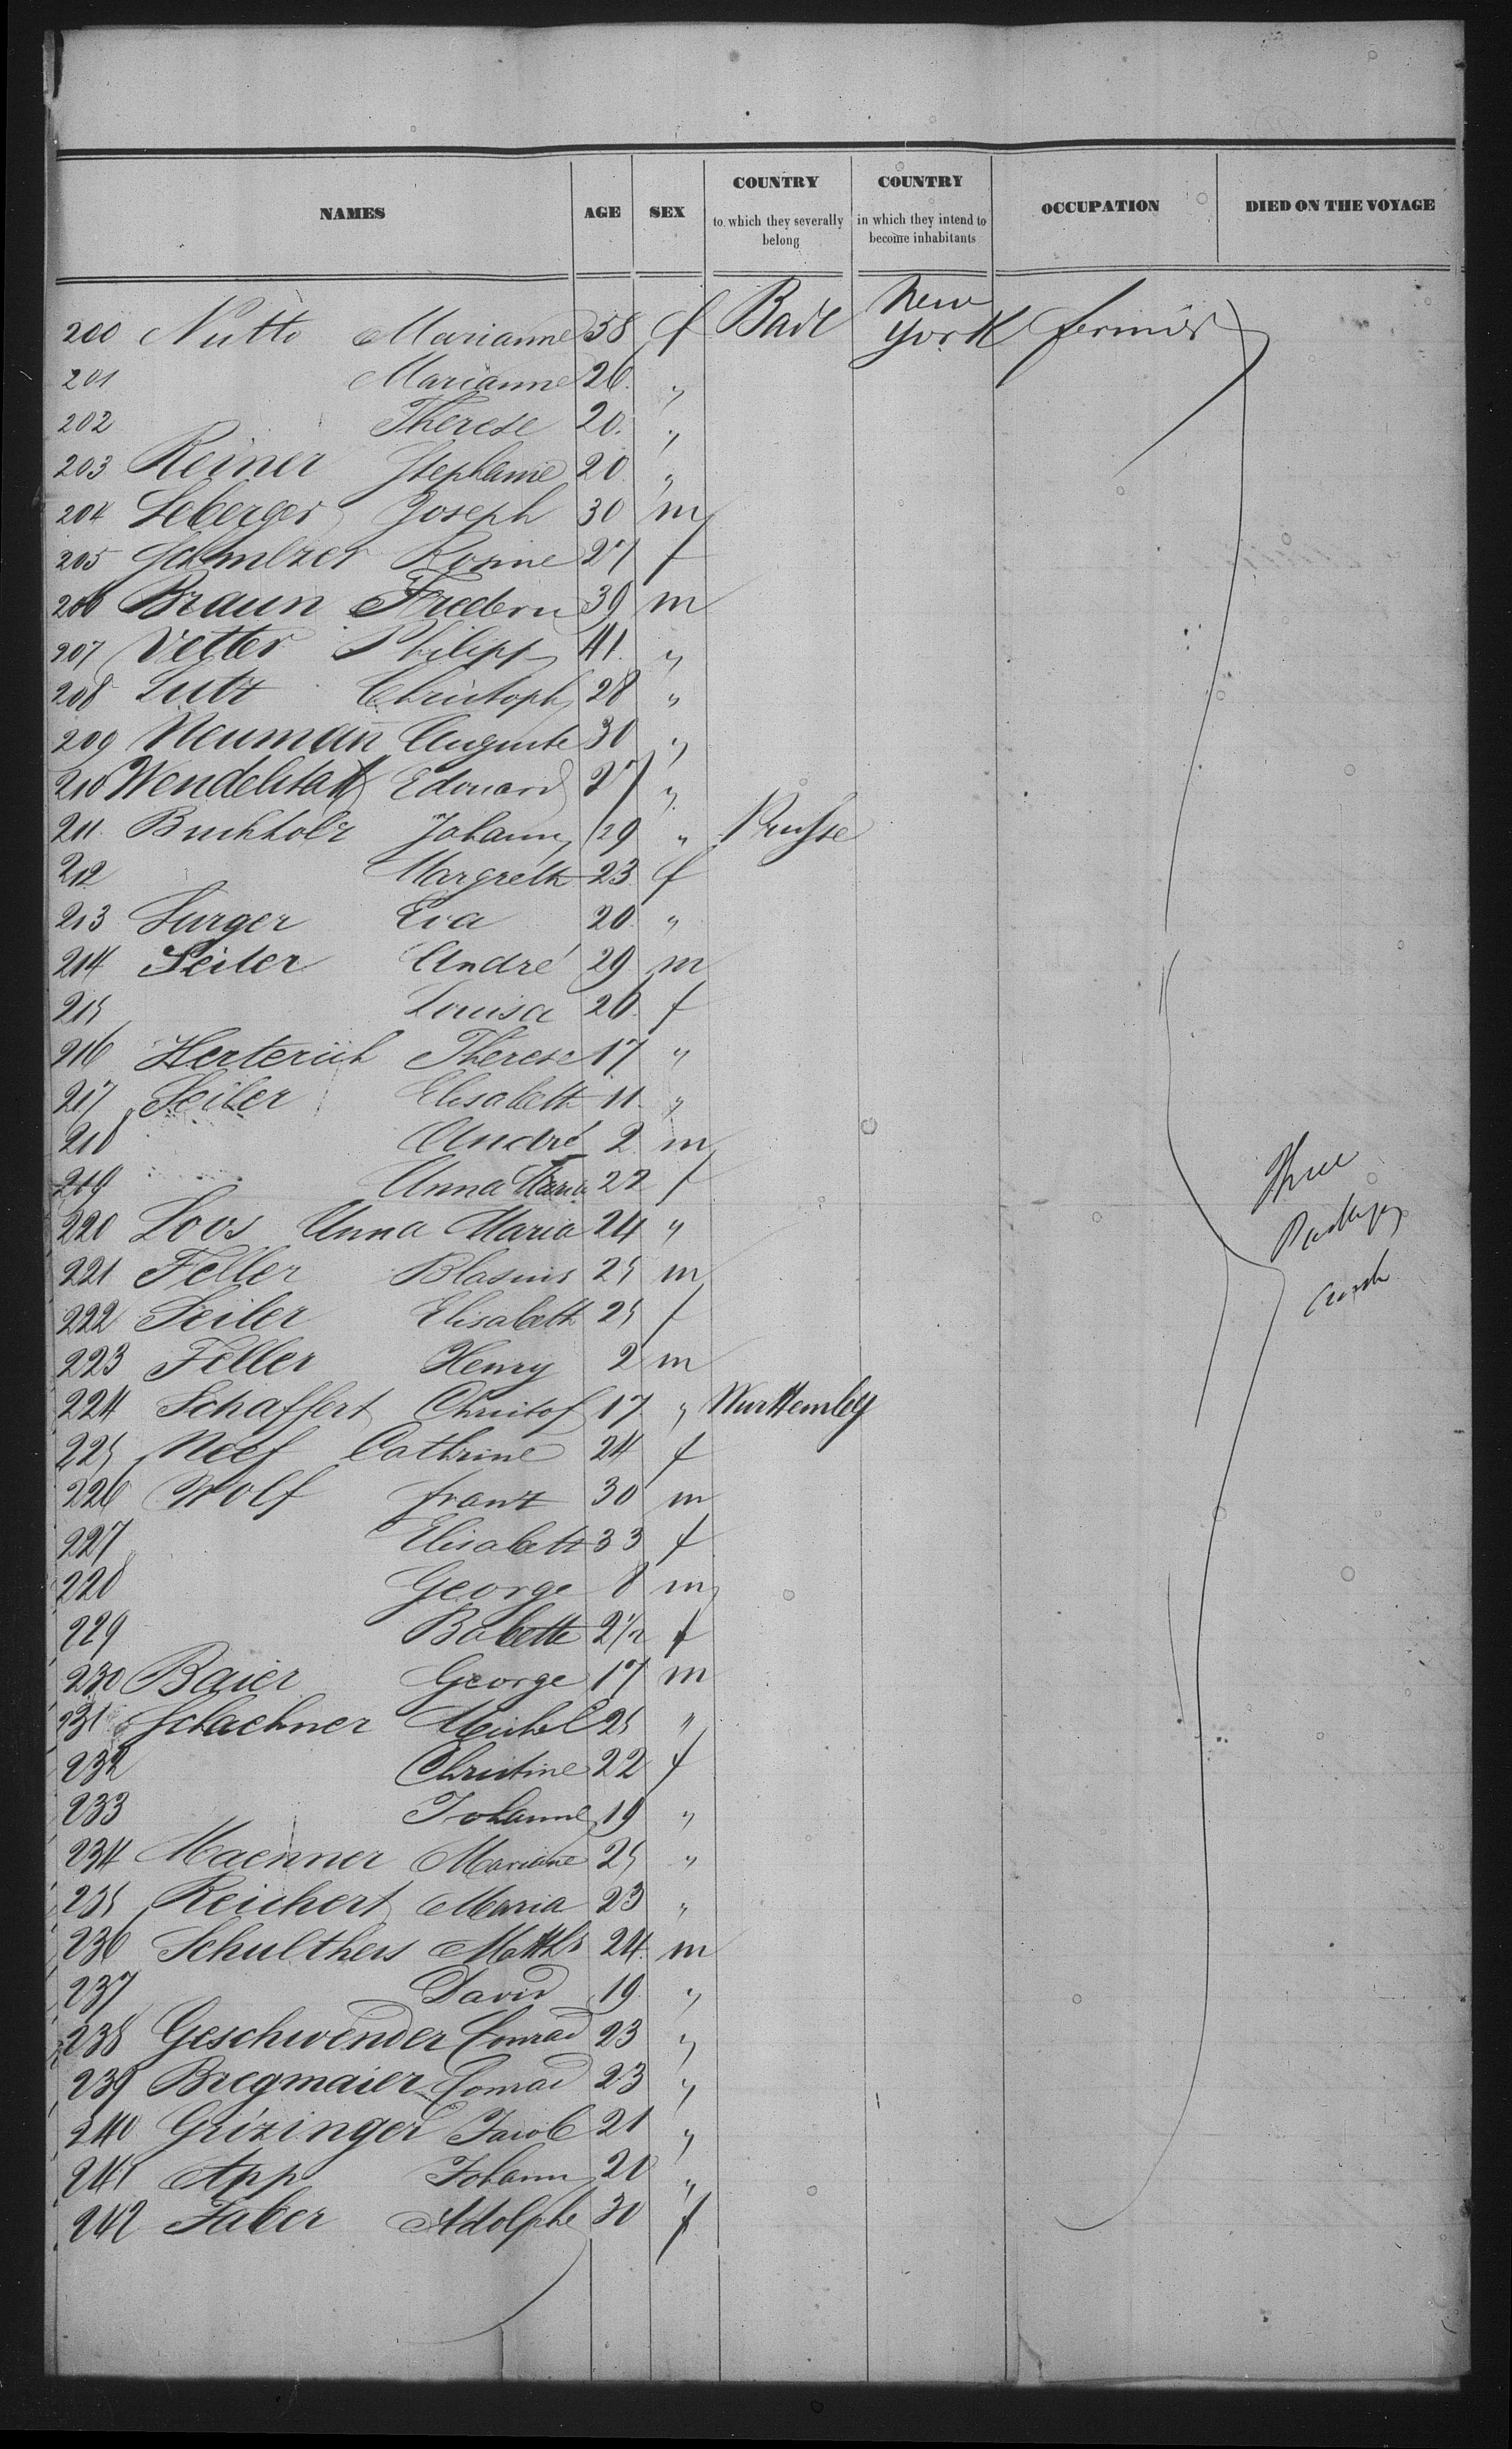 NAMES AGE SEX COUNTRY to which they severally belong COUNTRY in which they intend to become inhabitants OCCUPATION DIED ON THE VOYAGE
200 Nutto Marianne 58 f Bade New York
201 Marianne 26 "
202 Therese 20 "
203 Reiner Stephanie 20 "
204 Leberger Joseph 30 m
205 Schmelzer Rosine 27 f
206 Braun 39 m
207 Vetter Philipp 41 "
208 Lutz Christoph 28 "
209 Neuman Auguste 30 "
210 Wendelstatt Edouard 27 "
211 Buchholz Johann 29 " Prusse
212 Margreth 23 f
213 Eva 20 "
214 Seiler André 29 m
215 Louisa 26 f
216 Herterich Therese 17 "
217 Seiler Elisabeth 11 "
218 André 2 m
219 Anna Maria 22 f
220 Loos Anna Maria 24 "
221 Feller Blasius 25 m
222 Seiler Elisabeth 25 f
223 Feller Henry 2 m
224 Schaffert Christof 17 " Wurttemberg
225 Neef Cathrine 24 f
226 Wolf franz 30 m
227 Elisabeth 33 f
228 George 8 m
229 Babette 2 1/2 f
230 Baier George 17 m
231 Schachner Michel 25 "
232 Christine 22 f
233 Johanne 19 "
234 Maenner Mariane 25 "
235 Reichert Maria 23 "
236 Schulthess Matths 24 m
237 David 19 "
238 Geschwender Conrad 23 "
239 Bregmaier Conrad 23 "
240 Grizinger Jacob 21 "
241 App Johann 20 "
242 Faber Adolphe 30 f
Three
Packages
each